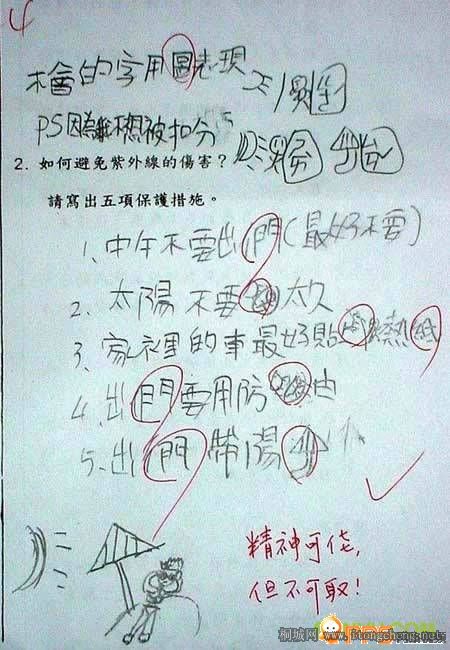 4
不會的字用圖表現
PS因為我不想被扣分
2. 如何避免紫外線的傷害?
請寫出五項保護措施。
1、中午不要出門(最好不要)
2、太陽不要太久
3、家裡的車最好貼熱紙
4、出門要用防油
5、出門帶陽
精神可佳,
但不可取!
桐城网 www.itongcheng.net